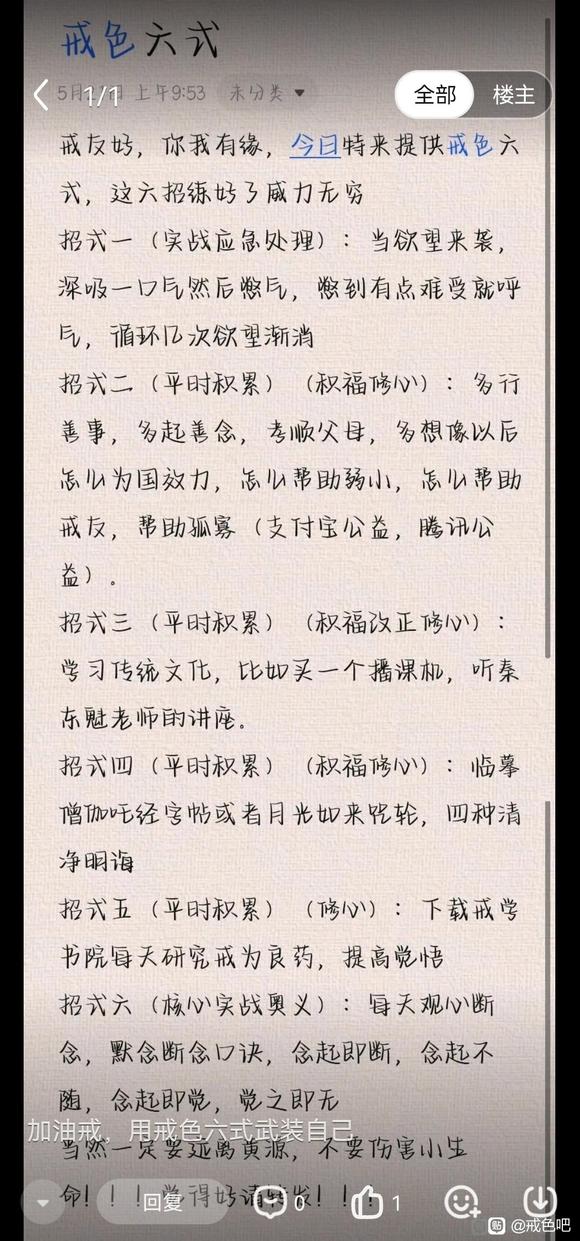 戒色六式
1/1
5月 上午9:53 未分类
全部 楼主
戒友好，你我有缘，今日特来提供戒色六
式，这六招练好了威力无穷
招式一（实战应急处理）：当欲望来袭，
深吸一口气然后憋气，憋到有点难受就呼
气，循环几次欲望渐消
招式二（平时积累）（积福修心）：多行
善事，多起善念，孝顺父母，多想像以后
怎么为国效力，怎么帮助弱小，怎么帮助
戒友，帮助孤寡（支付宝公益，腾讯公
益）。
招式三（平时积累）（积福改正修心）：
学习传统文化，比如买一个播课机，听秦
东魁老师的讲座。
招式四（平时积累）（积福修心）：临摹
僧伽吒经字帖或者月光如来咒轮，四种清
净明诲
招式五（平时积累）（修心）：下载戒学
书院每天研究戒为良药，提高觉悟
招式六（核心实战奥义）：每天观心断
念，默念断念口诀，念起即断，念起不
随，念起即觉，觉之即无
加油戒，用戒色六式武装自己
当然一定要远离黄源，不要伤害小生
命！！！觉得好请转发！！！
回复 0 1
贴 @戒色吧